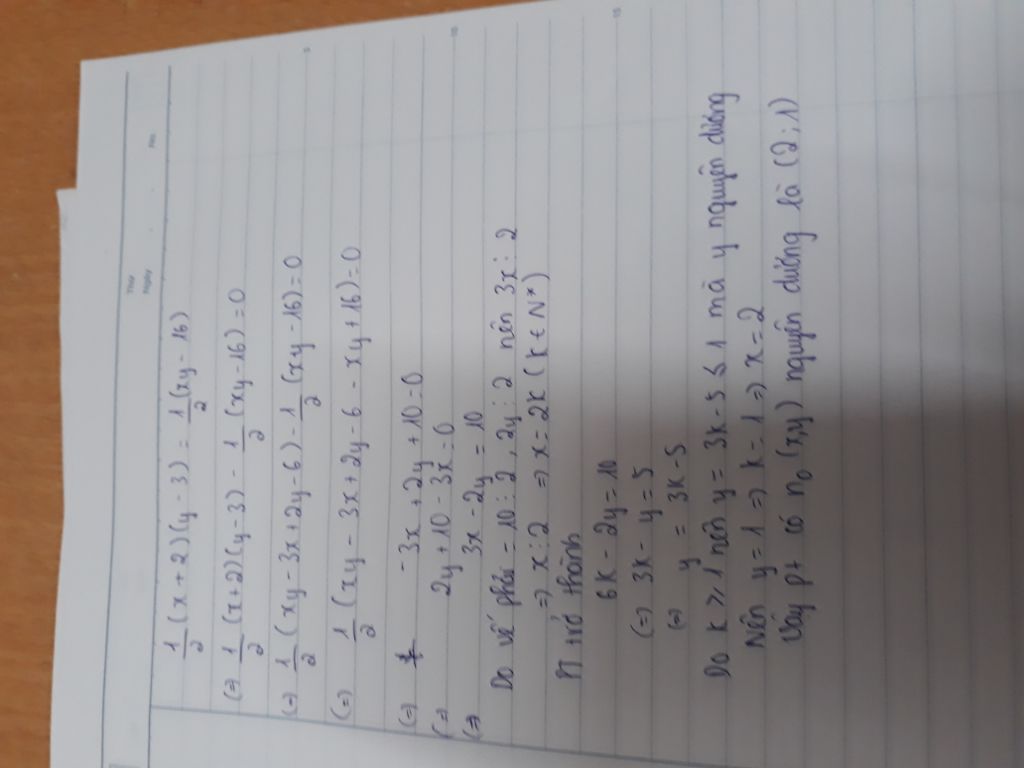 Thứ
Ngày
No.
1/2 (x+2)(y-3) = 1/2 (xy-16)
(=) 1/2 (x+2)(y-3) - 1/2 (xy-16) = 0
(=) 1/2 (xy-3x+2y-6) - 1/2 (xy-16) = 0
(=) 1/2 (xy-3x+2y-6-xy+16) = 0
(=) -3x+2y+10=0
(=) 2y+10-3x=0
(=) 3x-2y=10
Do vế phải = 10 ⋮ 2, 2y ⋮ 2 nên 3x ⋮ 2
=) x ⋮ 2 =) x=2k (k ∈ N*)
PT trở thành
6k-2y=10
(=) 3k-y=5
(=) y = 3k-5
Do k ≥ 1 nên y = 3k-5 ≤ 1 mà y nguyên dương
Nên y=1 =) k=1 =) x=2
Vậy pt có n₀ (x,y) nguyên dương là (2;1)